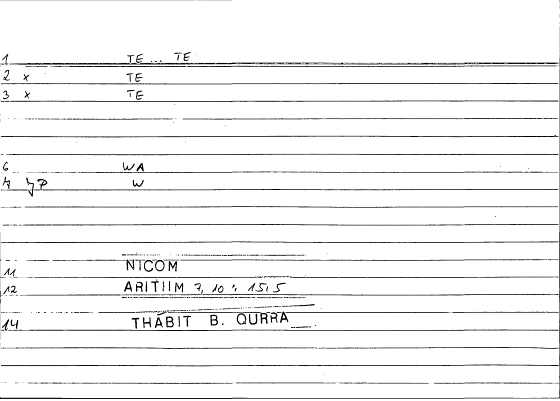 1 TE ... TE
2 x TE
3 x TE
6 WA
7 W
11 NICOM
12 ARITIIM 7, 10 : 15,5
14 THĀBIT B. QURRA